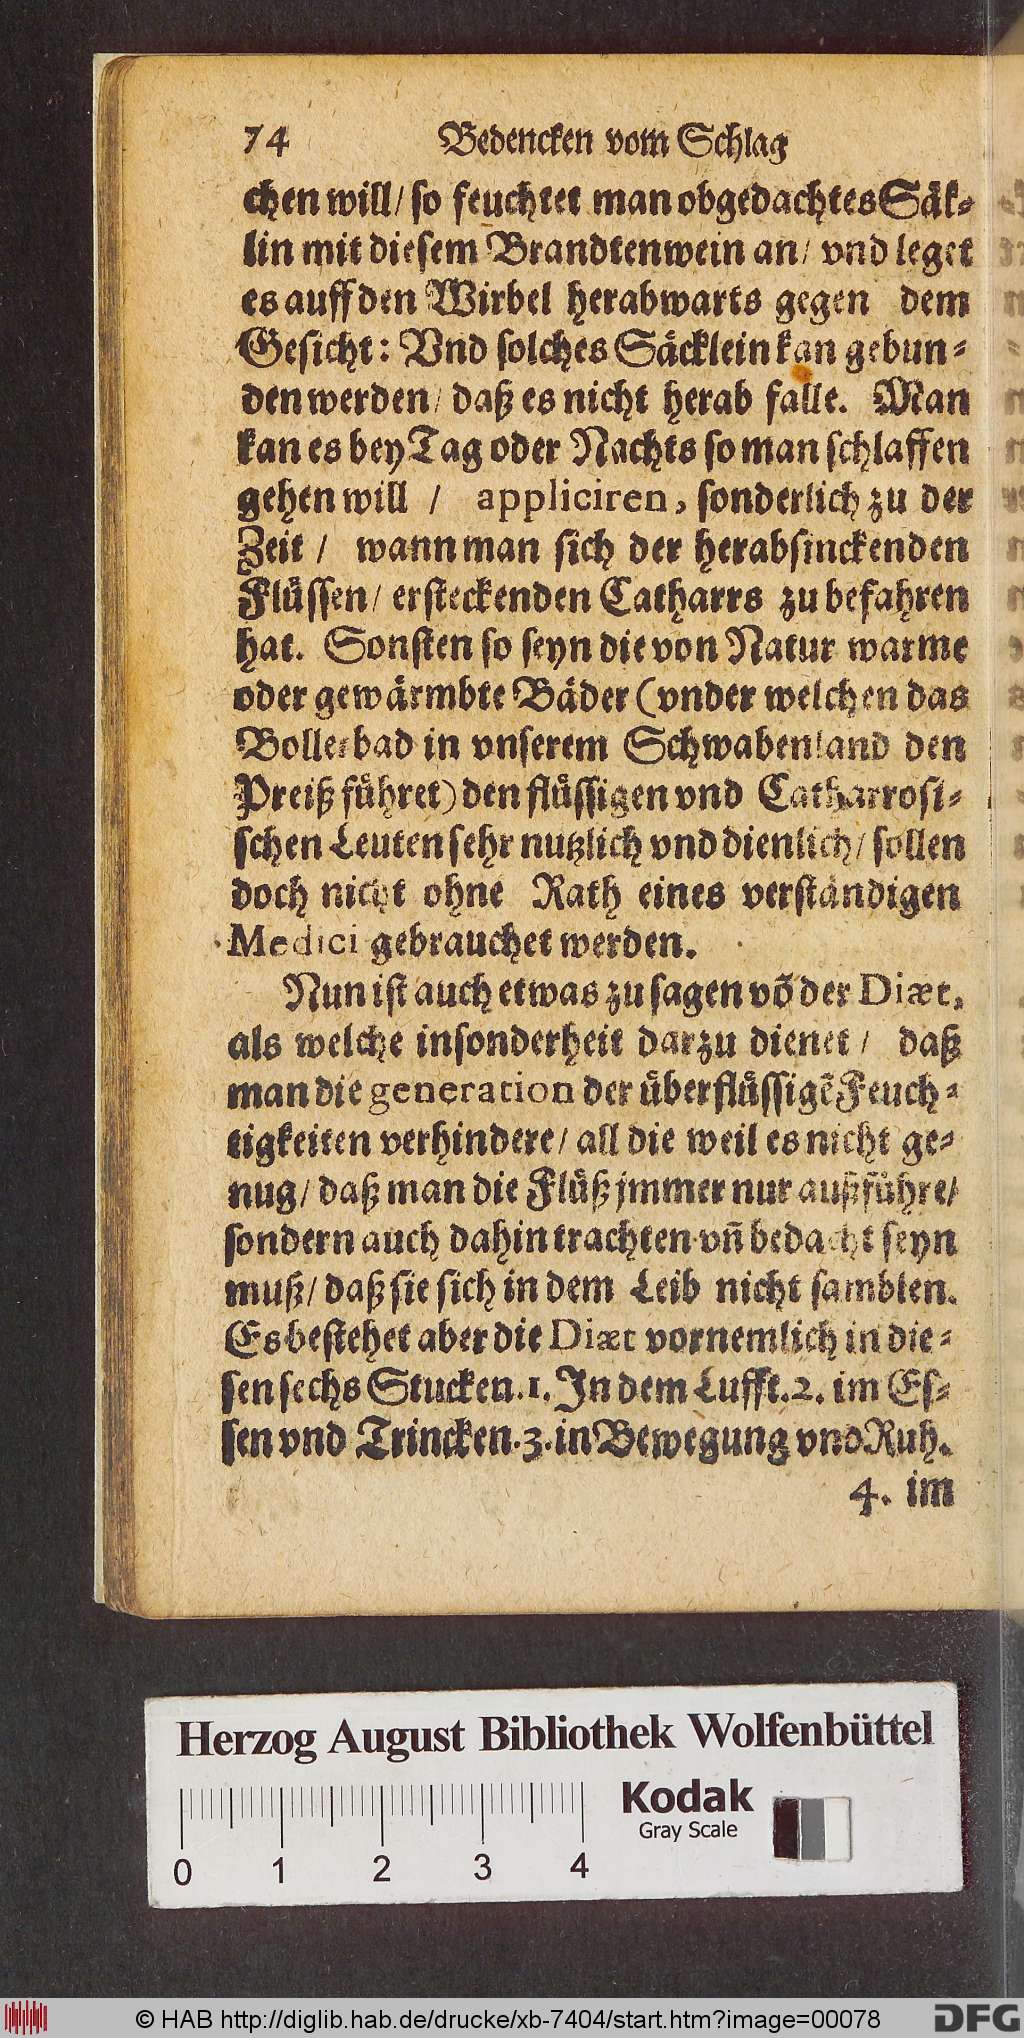 74 Bedencken vom Schlag
chen will/ so feuchtet man obgedachtes Säk-
lin mit diesem Brandtenwein an/ vnd leget
es auff den Wirbel herabwarts gegen dem
Gesicht: Vnd solches Säcklein kan gebun-
den werden/ daß es nicht herab falle. Man
kan es bey Tag oder Nachts so man schlaffen
gehen will / appliciren, sonderlich zu der
Zeit / wann man sich der herabsinckenden
Flüssen/ ersteckenden Catharrs zu befahren
hat. Sonsten so seyn die von Natur warme
oder gewärmbte Bäder (vnder welchen das
Bollerbad in vnserem Schwabenland den
Preiß führet) den flüssigen vnd Catharrosi-
schen Leuten sehr nutzlich vnd dienlich/ sollen
doch nicht ohne Rath eines verständigen
Medici gebrauchet werden.
Nun ist auch etwas zu sagen võ der Diæt,
als welche insonderheit darzu dienet / daß
man die generation der überflüssigẽ Feuch-
tigkeiten verhindere/ all die weil es nicht ge-
nug/ daß man die Flüß jmmer nur außführe/
sondern auch dahin trachten vñ bedacht seyn
muß/ daß sie sich in dem Leib nicht samblen.
Es bestehet aber die Diæt vornemlich in die-
sen sechs Stucken. 1. In dem Lufft. 2. im Es-
sen vnd Trincken. 3. in Bewegung vnd Ruh.
4. im
Herzog August Bibliothek Wolfenbüttel
Kodak
Gray Scale
0 1 2 3 4
© HAB http://diglib.hab.de/drucke/xb-7404/start.htm?image=00078
DFG